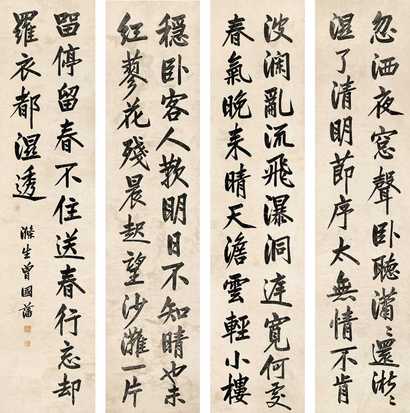 忽洒夜窓聲卧聽瀟〻還淅〻
湿了清明節序太無情不肯
波瀾亂流飛瀑洞庭寬何處
春氣晚来晴天澹雲輕小樓
穩卧客人歎明日不知晴也未
紅蓼花殘晨起望沙灘一片
畱停留春不住送春行忘却
羅衣都濕透
滌生曾國藩